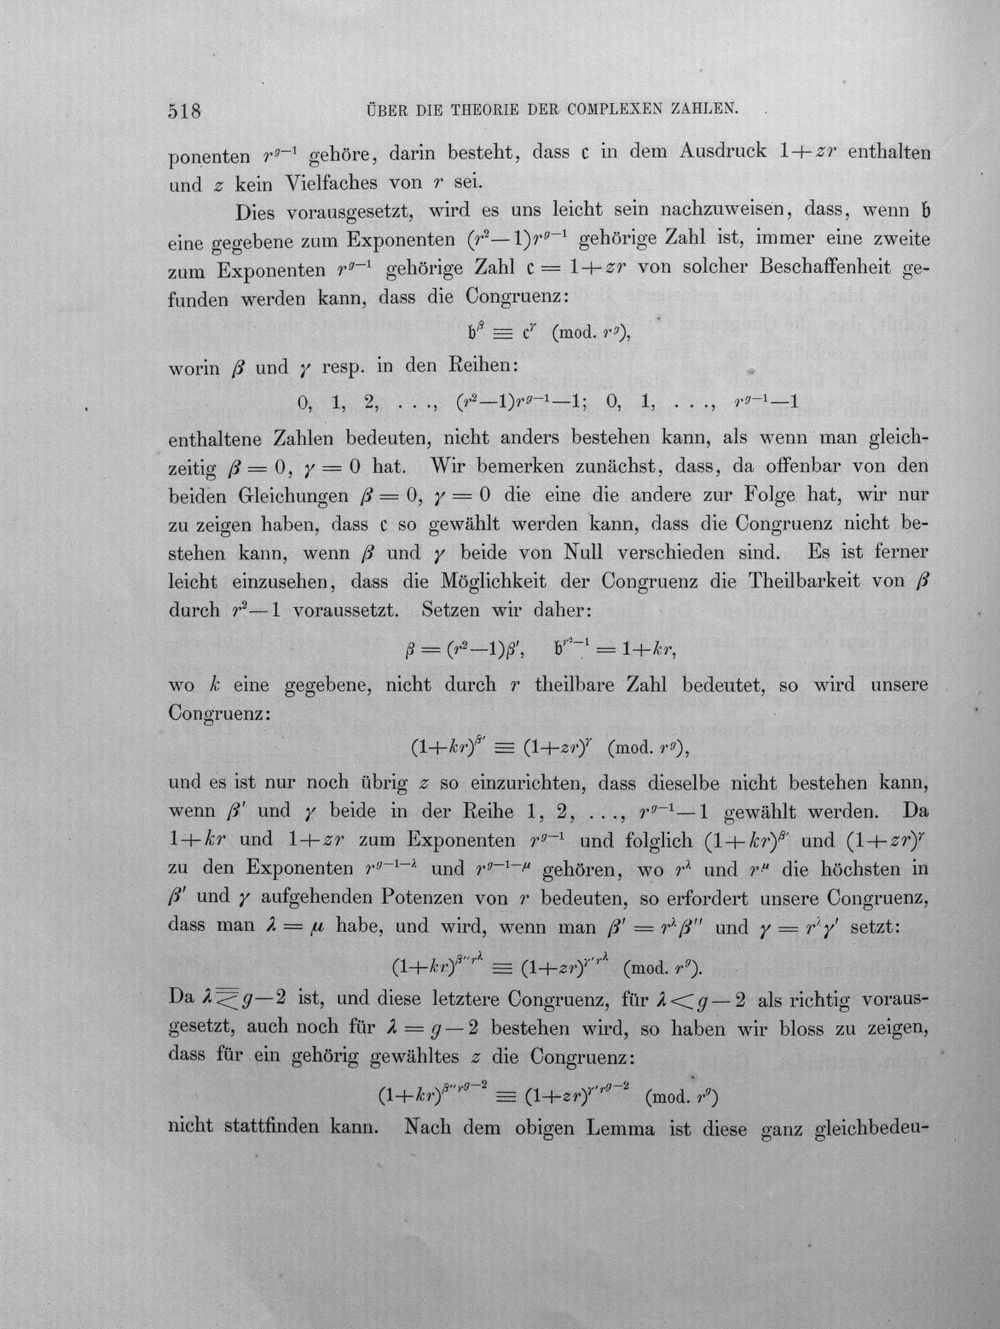 518 ÜBER DIE THEORIE DER COMPLEXEN ZAHLEN.
ponenten r^{g—1} gehöre, darin besteht, dass 𝔠 in dem Ausdruck 1+zr enthalten
und z kein Vielfaches von r sei.
Dies vorausgesetzt, wird es uns leicht sein nachzuweisen, dass, wenn 𝔟
eine gegebene zum Exponenten (r²—1)r^{g—1} gehörige Zahl ist, immer eine zweite
zum Exponenten r^{g—1} gehörige Zahl 𝔠 = 1+zr von solcher Beschaffenheit ge-
funden werden kann, dass die Congruenz:
𝔟^β ≡ 𝔠^γ (mod. r^g),
worin β und γ resp. in den Reihen:
0, 1, 2, . . ., (r²—1)r^{g—1}—1; 0, 1, . . ., r^{g—1}—1
enthaltene Zahlen bedeuten, nicht anders bestehen kann, als wenn man gleich-
zeitig β = 0, γ = 0 hat. Wir bemerken zunächst, dass, da offenbar von den
beiden Gleichungen β = 0, γ = 0 die eine die andere zur Folge hat, wir nur
zu zeigen haben, dass 𝔠 so gewählt werden kann, dass die Congruenz nicht be-
stehen kann, wenn β und γ beide von Null verschieden sind. Es ist ferner
leicht einzusehen, dass die Möglichkeit der Congruenz die Theilbarkeit von β
durch r²—1 voraussetzt. Setzen wir daher:
β = (r²—1)β′, 𝔟^{r²—1} = 1+kr,
wo k eine gegebene, nicht durch r theilbare Zahl bedeutet, so wird unsere
Congruenz:
(1+kr)^{β′} ≡ (1+zr)^γ (mod. r^g),
und es ist nur noch übrig z so einzurichten, dass dieselbe nicht bestehen kann,
wenn β′ und γ beide in der Reihe 1, 2, . . ., r^{g—1}—1 gewählt werden. Da
1+kr und 1+zr zum Exponenten r^{g—1} und folglich (1+kr)^{β′} und (1+zr)^γ
zu den Exponenten r^{g—1—λ} und r^{g—1—μ} gehören, wo r^λ und r^μ die höchsten in
β′ und γ aufgehenden Potenzen von r bedeuten, so erfordert unsere Congruenz,
dass man λ = μ habe, und wird, wenn man β′ = r^λβ″ und γ = r^λγ′ setzt:
(1+kr)^{β″r^λ} ≡ (1+zr)^{γ′r^λ} (mod. r^g).
Da λ ⋜ g—2 ist, und diese letztere Congruenz, für λ<g—2 als richtig voraus-
gesetzt, auch noch für λ = g—2 bestehen wird, so haben wir bloss zu zeigen,
dass für ein gehörig gewähltes z die Congruenz:
(1+kr)^{β″r^{g—2}} ≡ (1+zr)^{γ′r^{g—2}} (mod. r^g)
nicht stattfinden kann. Nach dem obigen Lemma ist diese ganz gleichbedeu-